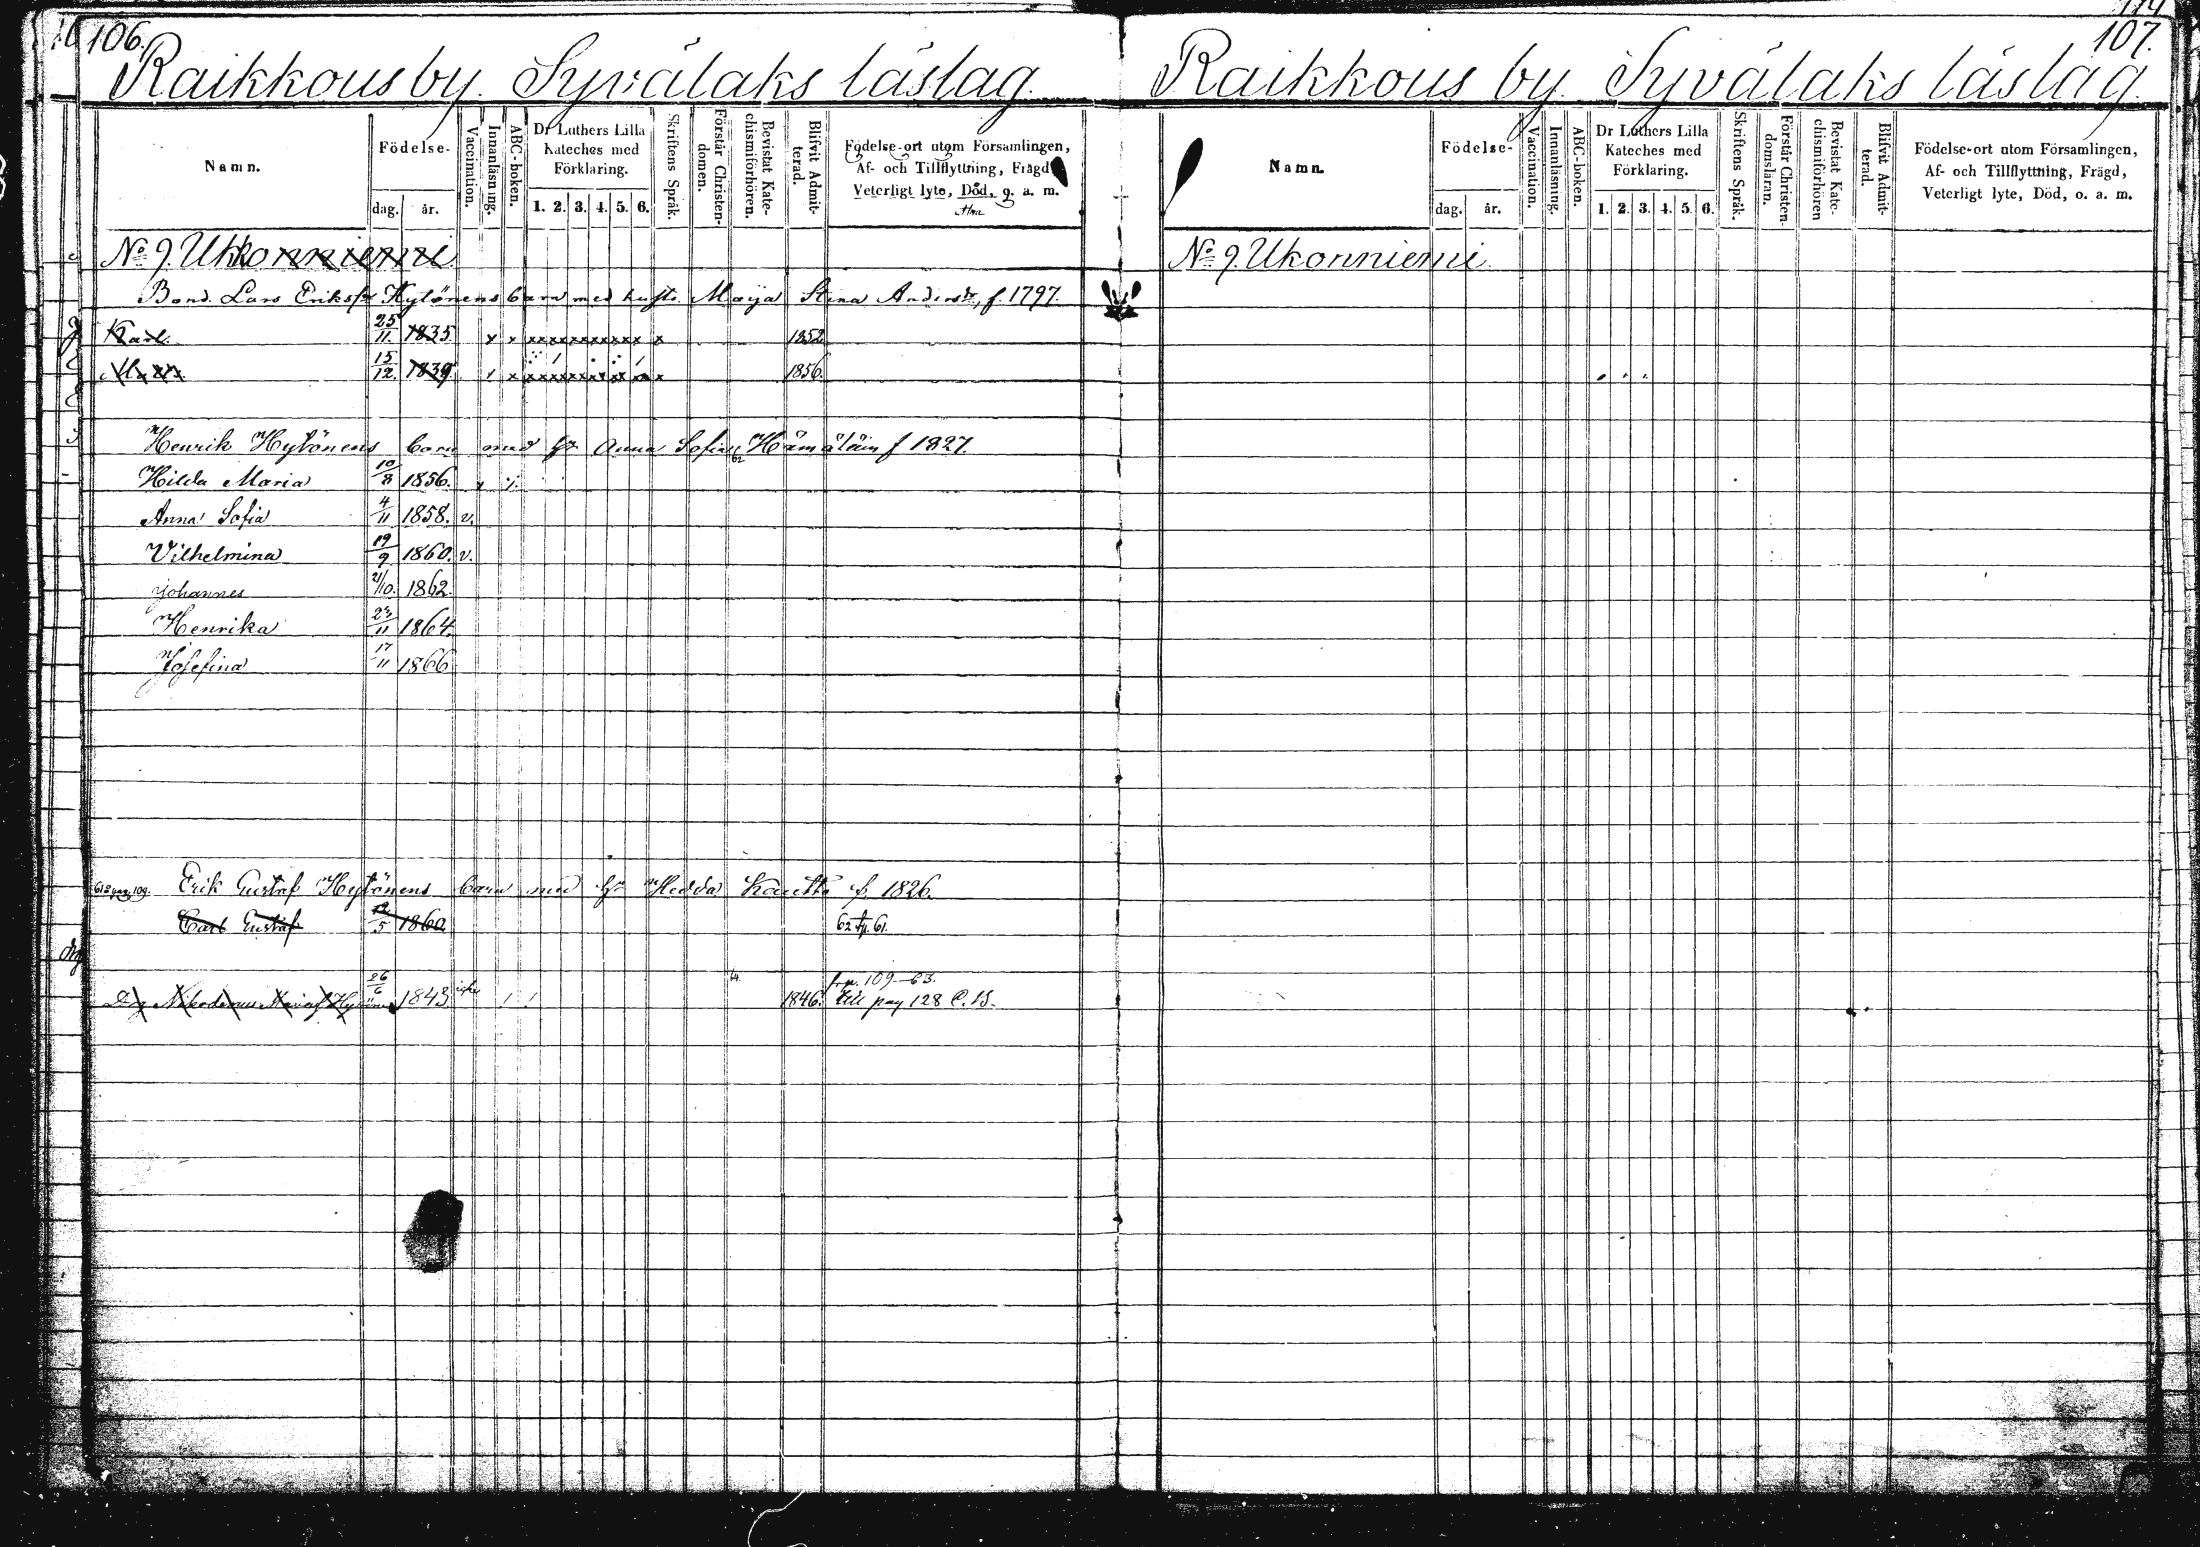 106.
Raikkous by. Syvälaks läslag.
Namn.
Födelse-
dag. år.
Vaccination.
Innanläsning.
ABC-boken.
Dr Luthers Lilla
Kateches med
Förklaring.
1. 2. 3. 4. 5. 6.
Skriftens Språk.
Förstår Christen-
domen.
Bevistat Kate-
chismiförhören.
Blifvit Admit-
terad.
Födelse-ort utom Församlingen,
Af- och Tillflyttning, Frägd,
Veterligt lyte, Död, o. a. m.
No 9. Ukkonniemi
Bond. Lars Eriksson Hytönens barn med hustr. Maija Stina Andersdr, f. 1797.
Karl. 25/11 1835. x x xxxxxxxxxxx x 1852
15/12. 1839 x xxxxxxxxx x 1856.
Henrik Hytönens barn med hr Anna Sofia Hämäläin f 1827.
62
Hilda Maria 10/8 1856.
Anna Sofia 4/11 1858. v.
Vilhelmina 19/9 1860. v.
Johannes 21/10. 1862.
Henrika 23/11 1864.
Josefina 17/11 1866
109. Erik Gustaf Hytönens barn med hr Hedda Kautto f. 1826.
Carl Gustaf 12/5 1860 62 † 61.
f. p. 109-63.
Nikodemus Hytönen 26/6 1843 1846. till pag 128 C. B.
107.
Raikkous by. Syvälaks läslag.
Namn.
Födelse-
dag. år.
Vaccination.
Innanläsning.
ABC-boken.
Dr Luthers Lilla
Kateches med
Förklaring.
1. 2. 3. 4. 5. 6.
Skriftens Språk.
Förstår Christen-
domsläran.
Bevistat Kate-
chismiförhören
Blifvit Admit-
terad.
Födelse-ort utom Församlingen,
Af- och Tillflyttning, Frägd,
Veterligt lyte, Död, o. a. m.
No 9. Ukonniemi.